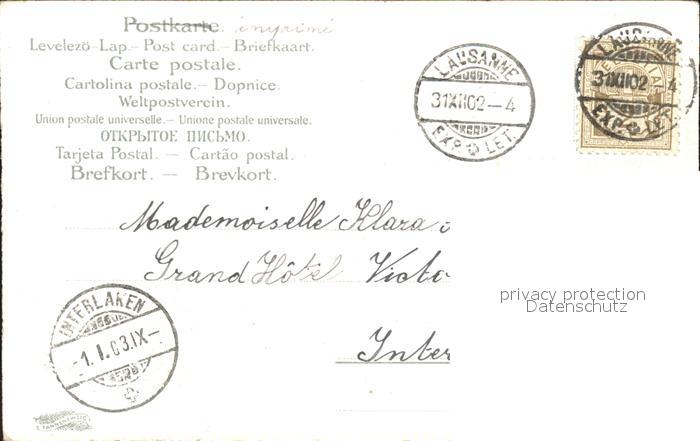 Postkarte. inyrimé
Levelező-Lap. – Post card. – Briefkaart.
Carte postale.
Cartolina postale. – Dopnice.
Weltpostverein.
Union postale universelle. – Unione postale universale.
ОТКРЫТОЕ ПИСЬМО.
Tarjeta Postal. – Cartão postal.
Brefkort. – Brevkort.
LAUSANNE
31XII02–4
EXP. LET.
LAUSANNE
31XII02–4
EXP. LET.
Mademoiselle Klara
Grand Hôtel Victo
Inter
privacy protection
Datenschutz
INTERLAKEN
-1.I.03.IX-